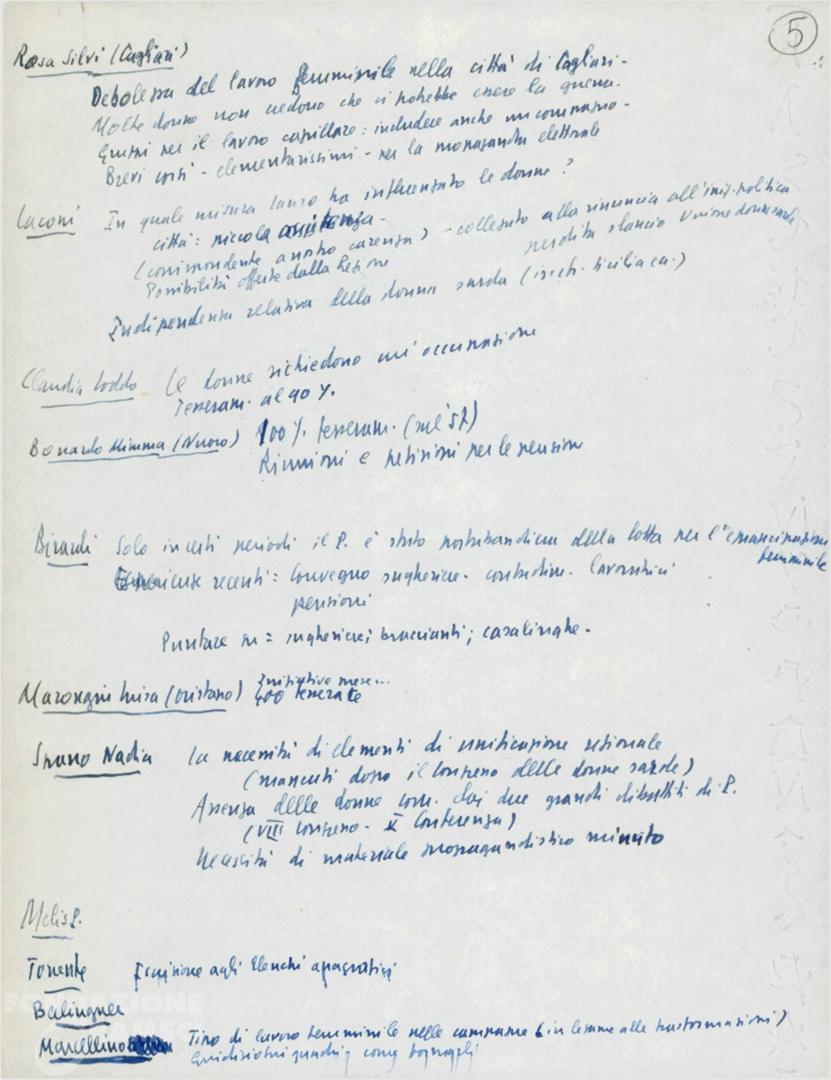 5
Rosa Silvi (Cagliari)
Debolezza del lavoro femminile nella città di Cagliari -
Molte donne non credono che ci potrebbe essere la guerra.
Gruppi per il lavoro capillare: includere anche un compagno -
Brevi corsi - elementarissimi - per la propaganda elettorale
Laconi In quale misura Lauro ha influenzato le donne?
città: piccola assistenza -
(corrispondente a nostra carenza) - collegato alla rinuncia all'iniz. politica
Possibilità offerte dalla Regione perdita slancio Unione donne sarde
Indipendenza relativa della donna sarda (risp. siciliana)
Claudia Loddo Le donne richiedono un'occupazione
Tesseram. al 90 %.
Bonardo Mimma (Nuoro) 100 %. tesseram. (sul '57)
Riunioni e petizioni per le pensioni
Birardi Solo in certi periodi il P. è stato portabandiera della lotta per l'emancipazione
femminile
Esperienze recenti: Convegno sugheriere - contadine - lavoratrici
pensioni
Puntare su = sugheriere; braccianti; casalinghe -
Marongiu Luisa (Oristano) Iniziative mese...
400 tesserate
Spano Nadia La necessità di elementi di unificazione regionale
(mancati dopo il Congresso delle donne sarde)
Assenza delle donne com. dai due grandi dibattiti di P.
(VIII Congresso - Conferenza)
Necessità di materiale propagandistico minuto
Melis P.
Torrente Iscrizione agli Elenchi anagrafici
FONDAZIONE
Berlinguer
Marcellino Tipo di lavoro femminile nelle campagne (in legame alle trasformazioni)